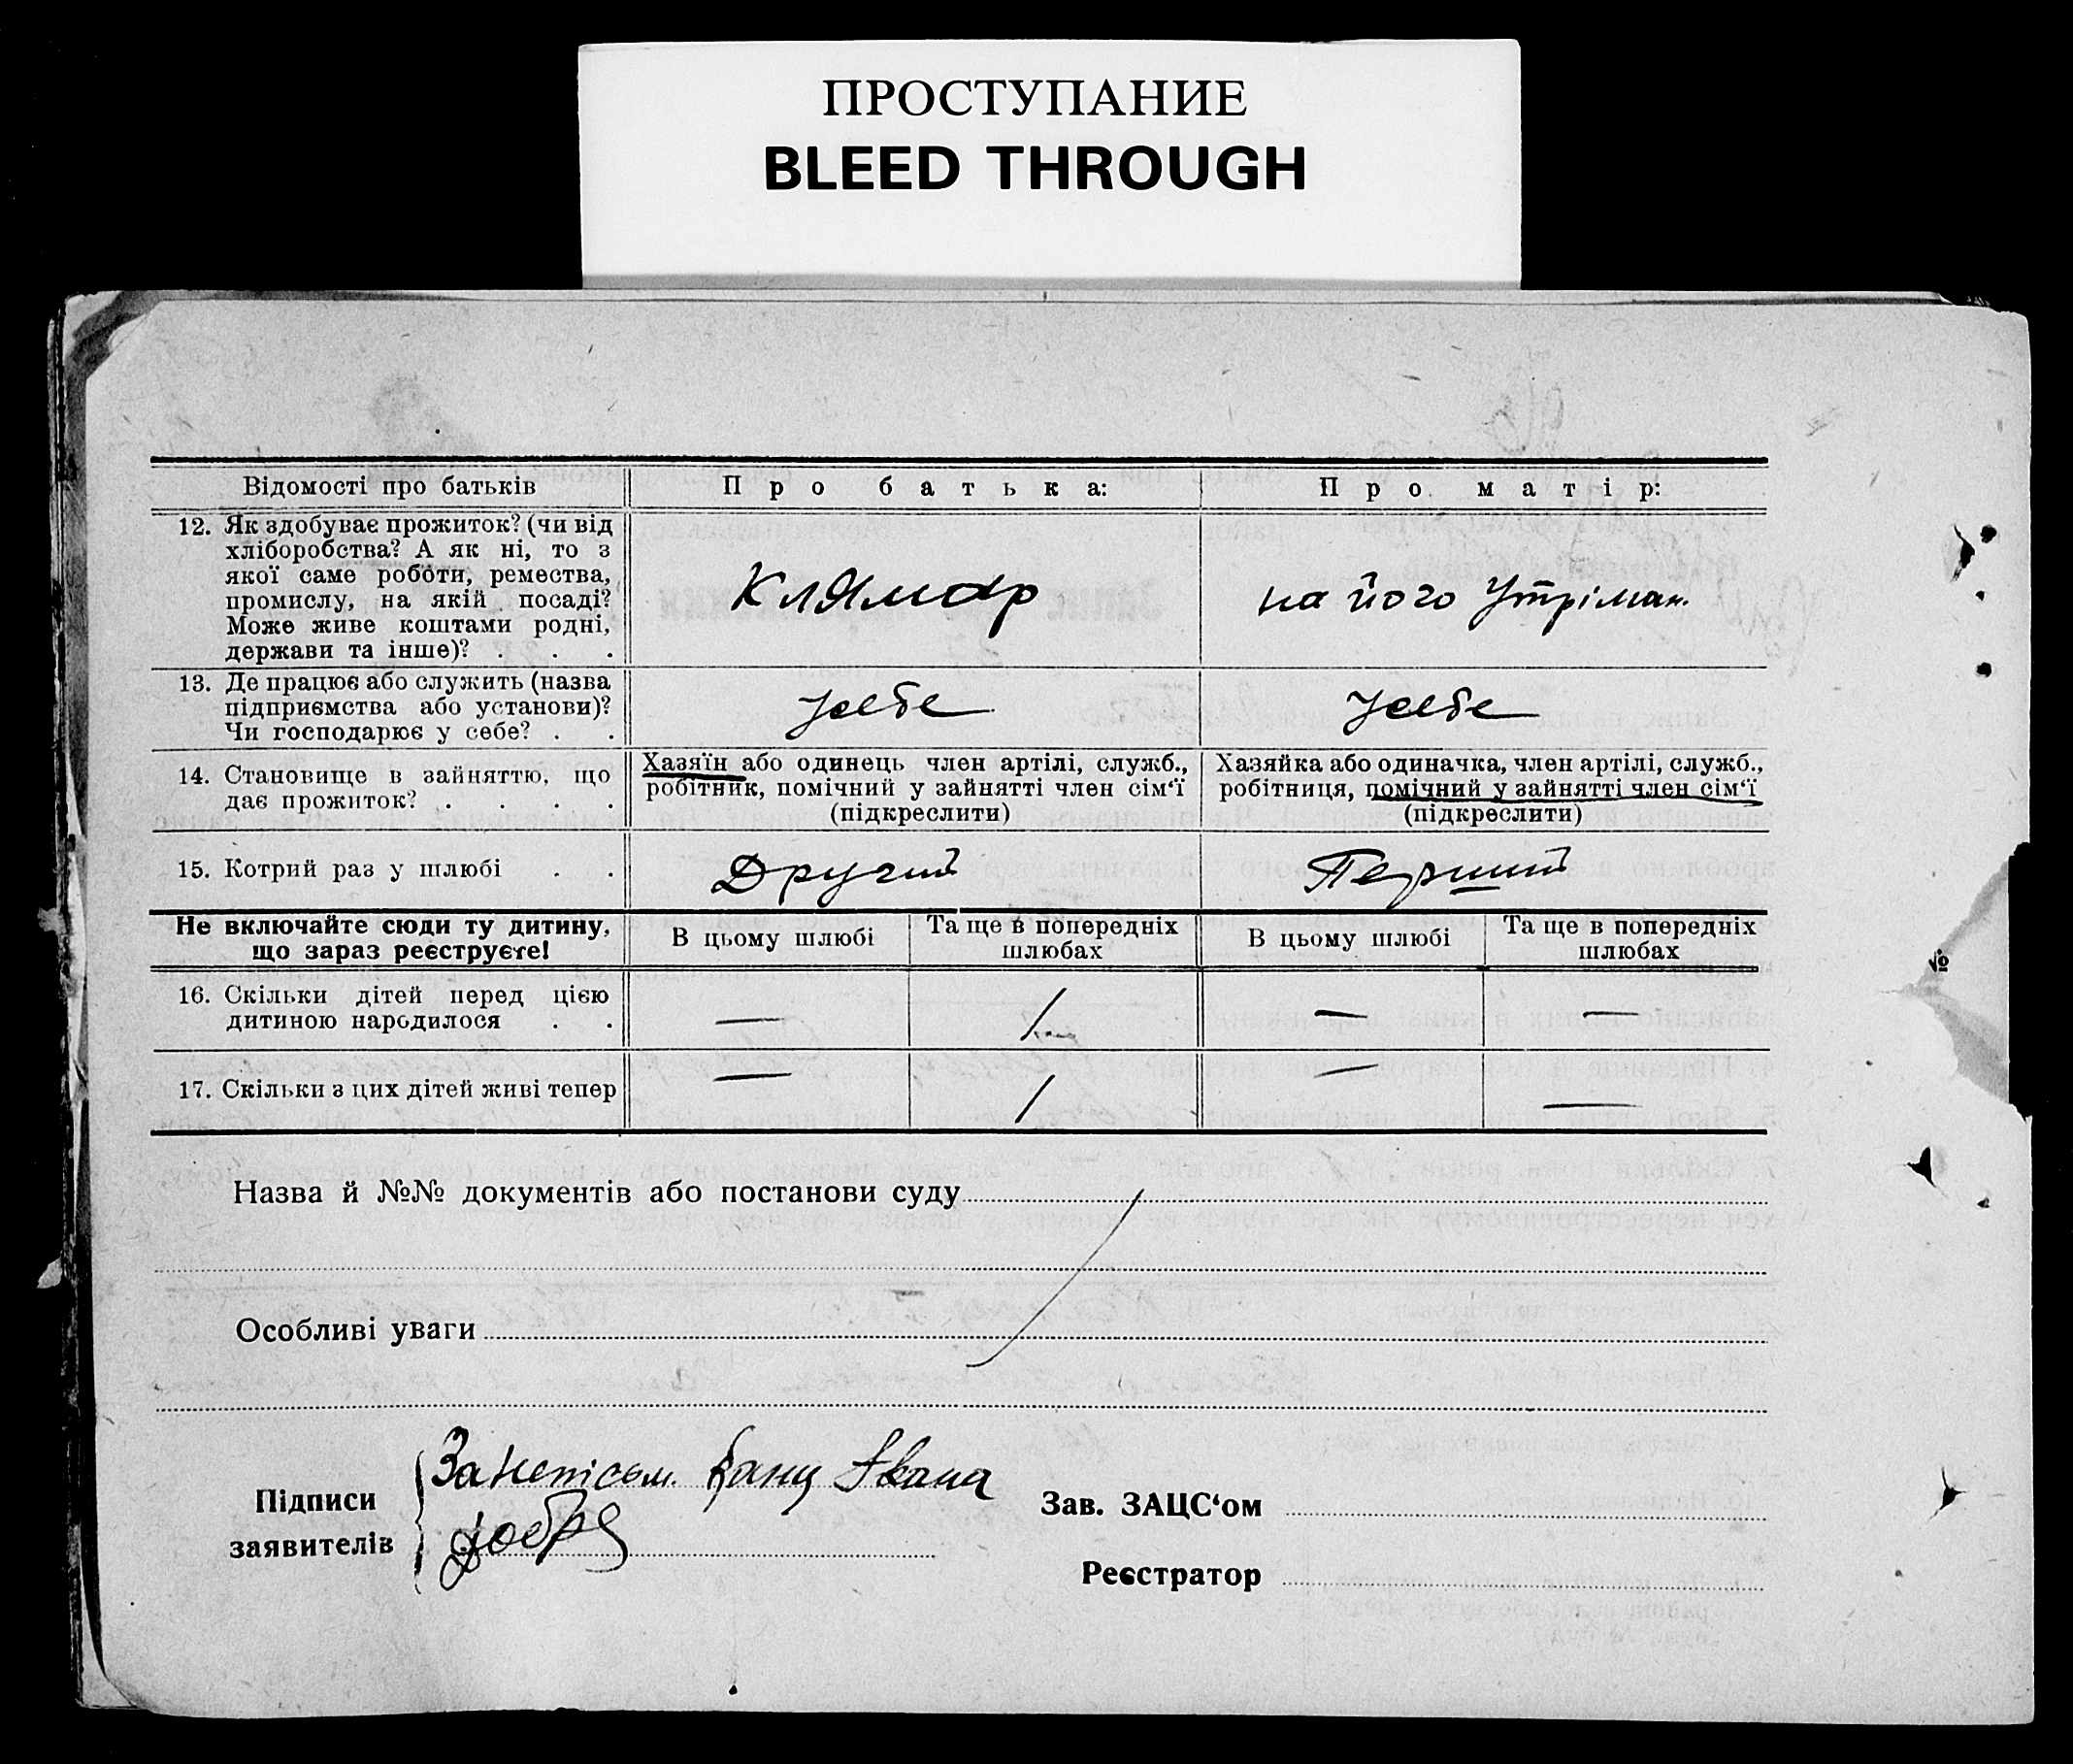 ПРОСТУПАНИЕ
BLEED THROUGH
Відомості про батьків
Про батька:
Про матір:
12. Як здобуває прожиток? (чи від
хліборобства? А як ні, то з
якої саме роботи, ремества,
промислу, на якій посаді?
Може живе коштами родні,
держави та інше)? . . .
Клямар
на його Утріман.
13. Де працює або служить (назва
підприємства або установи)?
Чи господарює у себе? . .
Усебе
Усебе
14. Становище в зайняттю, що
дає прожиток? . . . .
Хазяїн або одинець член артілі, служб.,
робітник, помічний у зайнятті член сім'ї
(підкреслити)
Хазяйка або одиначка, член артілі, служб.,
робітниця, помічний у зайнятті член сім'ї
(підкреслити)
15. Котрий раз у шлюбі . .
Другий
Перший
Не включайте сюди ту дитину,
що зараз реєструєте!
В цьому шлюбі
Та ще в попередніх
шлюбах
В цьому шлюбі
Та ще в попередніх
шлюбах
16. Скільки дітей перед цією
дитиною народилося . .
—
1
—
—
17. Скільки з цих дітей живі тепер
—
1
—
—
Назва й №№ документів або постанови суду
Особливі уваги
Підписи
заявителів
За неписьм. Івана
Зав. ЗАЦС'ом
Реєстратор